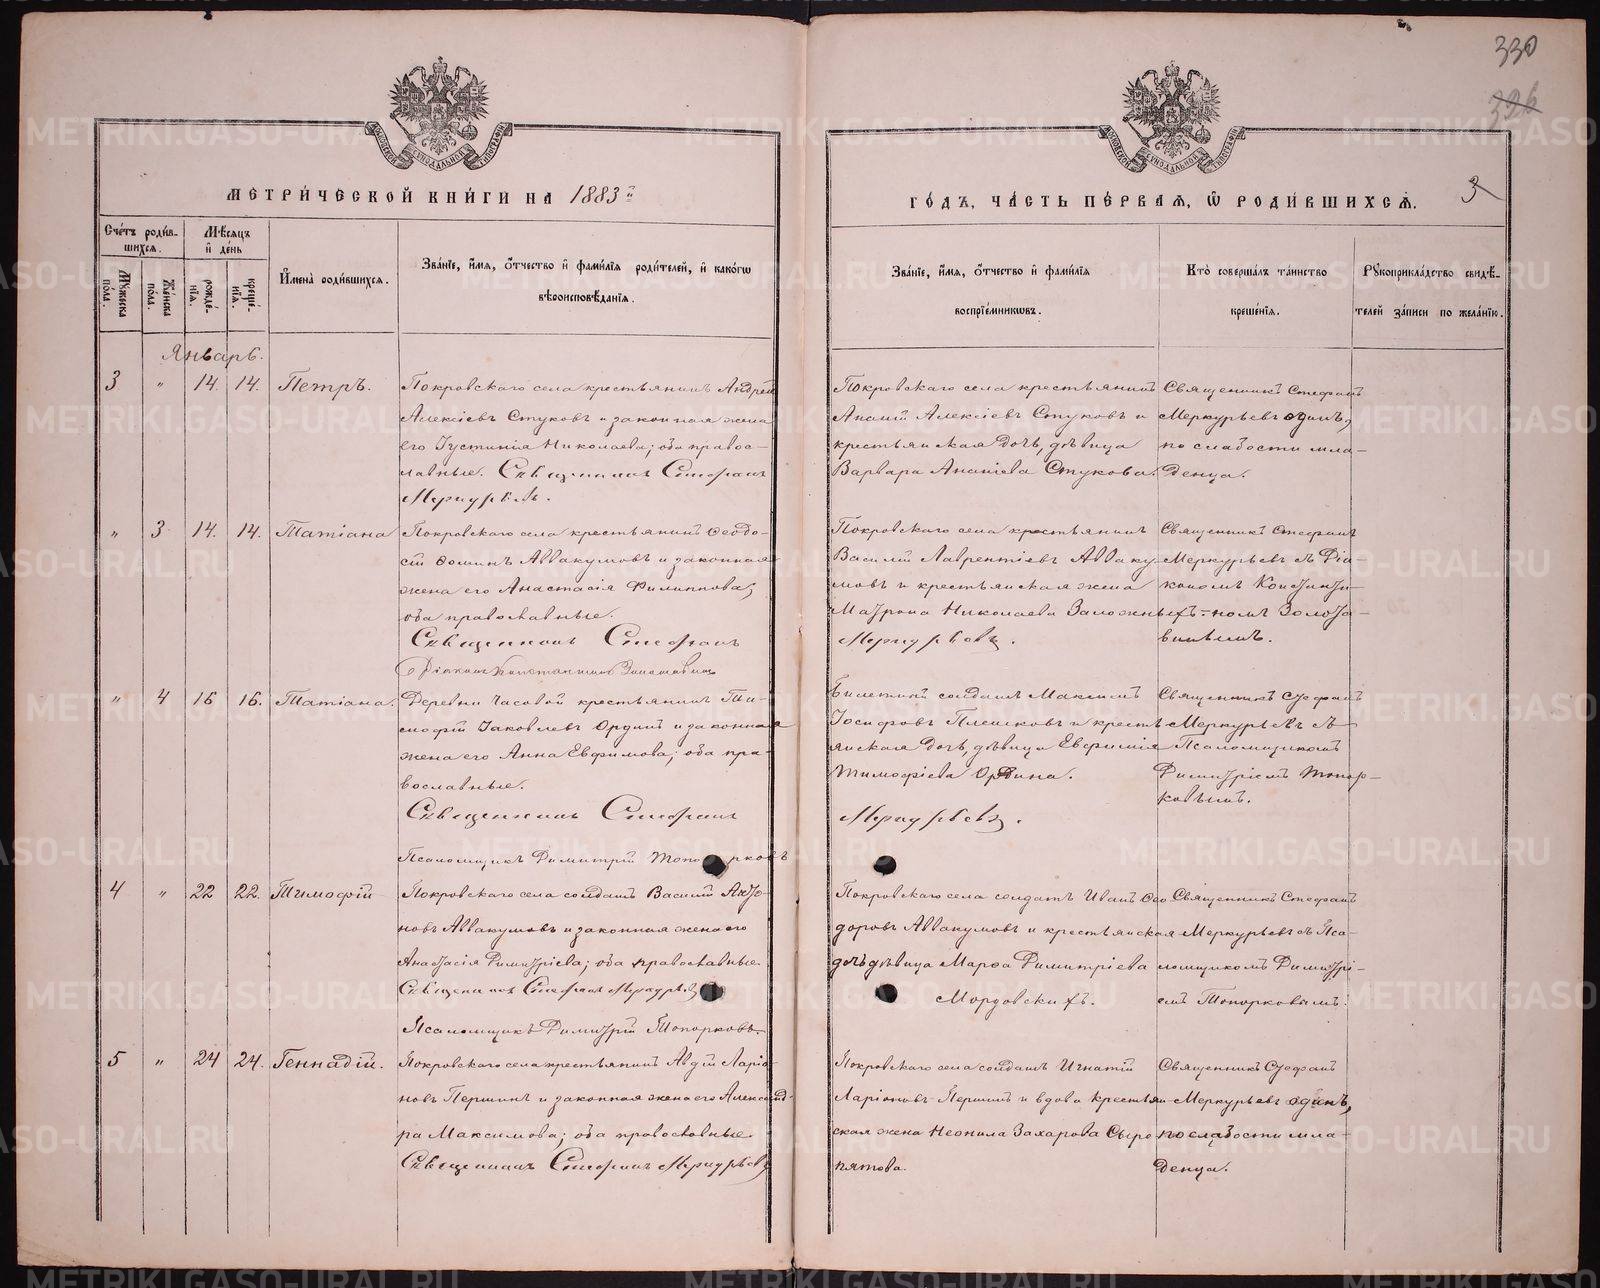 330
326
МЕТРИЧЕСКОЙ КНИГИ НА 1883й
ГОДЪ, ЧАСТЬ ПЕРВАЯ, Ѡ РОДИВШИХСЯ.
3
Счетъ родив-
шихся.
Мѣсяцъ
и день
Мужеска
пола.
Женска
пола.
рожде-
нія.
креще-
нія.
Имена родившихся.
Званіе, имя, отчество и фамилія родителей, и какогѡ
вѣроисповѣданія.
Званіе, имя, отчество и фамилія
воспріемникѡвъ.
Кто совершалъ таинство
крещенія.
Рукоприкладство свидѣ-
телей записи по желанію.
Январь.
3 " 14. 14. Петръ.
Покровскаго села крестьянинъ Андрей
Алексіевъ Стуковъ и законная жена
его Іустинія Николаева; оба правос-
лавные. Священникъ Стефанъ
Меркурьевъ.
Покровскаго села крестьянинъ
Ананій Алексіевъ Стуковъ и
крестьянская дочь, дѣвица
Варвара Ананіева Стукова.
Священникъ Стефанъ
Меркурьевъ одинъ,
по слабости мла-
денца.
" 3 14. 14. Татіана
Покровскаго села крестьянинъ Ѳеодо-
сій Ѳоминъ Аввакумовъ и законная
жена его Анастасія Филиппова;
оба православные.
Священникъ Стефанъ
Меркурьевъ.
Діаконъ Константинъ Золотавинъ
Покровскаго села крестьянинъ
Василій Лаврентіевъ Авваку-
мовъ и крестьянская жена
Матрона Николаева Заложныхъ.
Священникъ Стефанъ
Меркурьевъ съ Діа-
кономъ Константи-
номъ Золота-
винымъ.
" 4 16 16. Татіана.
Деревни Часовой крестьянинъ Ти-
мофій Іаковлевъ Ординъ и законная
жена его Анна Евфимова; оба пра-
вославные.
Священникъ Стефанъ
Меркурьевъ.
Псаломщикъ Димитрій Топорковъ
Билетный солдатъ Максимъ
Іосифовъ Плешковъ и кресть-
янская дочь, дѣвица Евфимія
Тимофіева Ордина.
Священникъ Стефанъ
Меркурьевъ съ
Псаломщикомъ
Димитріемъ Топор-
ковымъ.
4 " 22 22. Тимофій
Покровскаго села солдатъ Василій Анто-
новъ Аввакумовъ и законная жена его
Анастасія Димитріева; оба православные.
Священникъ Стефанъ Меркурьевъ
Псаломщикъ Димитрій Топорковъ.
Покровскаго села солдатъ Иванъ Ѳео
доровъ Аввакумовъ и крестьянская
дочь дѣвица Марѳа Димитріева
Мордовскихъ.
Священникъ Стефанъ
Меркурьевъ съ Пса-
ломщикомъ Димитрі-
емъ Топорковымъ.
5 " 24 24. Геннадій.
Покровскаго села крестьянинъ Авдій Ларіо-
новъ Першинъ и законная жена его Александ-
ра Максимова; оба православные.
Священникъ Стефанъ Меркурьевъ
Покровскаго села солдатъ Игнатій
Ларіоновъ Першинъ и вдова крестьян-
ская жена Неонила Захарова Сыро
пятова.
Священникъ Стефанъ
Меркурьевъ одинъ,
по слабости мла-
денца.
METRIKI.GASO-URAL.RU